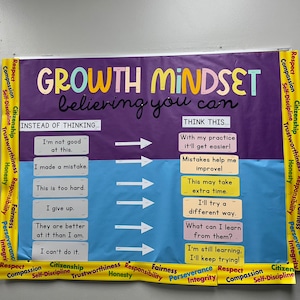 GROWTH MINDSET
believing you can
INSTEAD OF THINKING...
THINK THIS...
I'm not good
at this.
With my practice
it'll get easier!
I made a mistake.
Mistakes help me
improve!
This is too hard.
This may take
extra time.
I give up.
I'll try a
different way.
They are better
at it than I am.
What can I learn
from them?
I can't do it.
I'm still learning.
I'll keep trying!
Respect
Compassion
Citizenship
Self-Discipline
Trustworthiness
Honesty
Respect
Compassion
Fairness
Perseverance
Integrity
Respect
Compassion
Citizenship
Self-Discipline